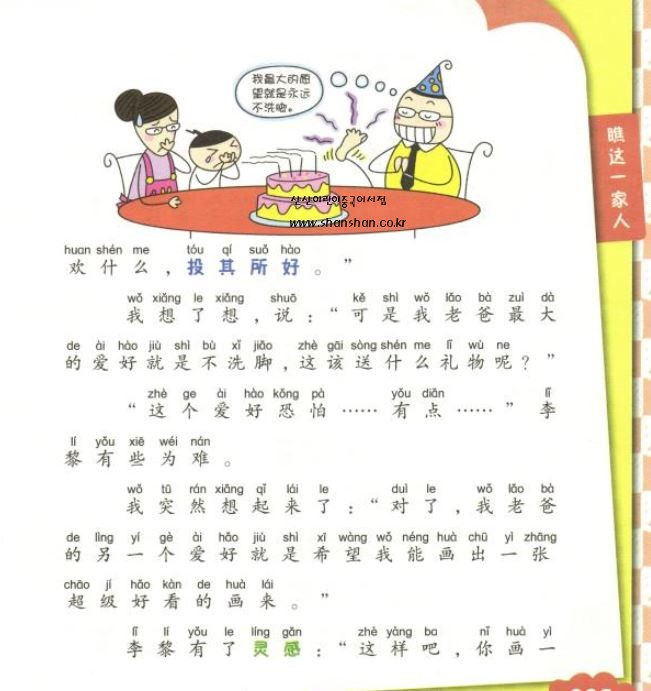 我最大的愿
望就是永远
不洗脚。
산산어린이중국어서점
www.shanshan.co.kr
瞧这一家人
huan shén me tóu qí suǒ hào
欢什么，投其所好。”
wǒ xiǎng le xiǎng shuō kě shì wǒ lǎo bà zuì dà
我想了想，说：“可是我老爸最大
de ài hào jiù shì bù xǐ jiǎo zhè gāi sòng shén me lǐ wù ne
的爱好就是不洗脚，这该送什么礼物呢？”
zhè ge ài hào kǒng pà yǒu diǎn lǐ
“这个爱好恐怕……有点……”李
lí yǒu xiē wéi nán
黎有些为难。
wǒ tū rán xiǎng qǐ lái le duì le wǒ lǎo bà
我突然想起来了：“对了，我老爸
de lìng yí gè ài hào jiù shì xī wàng wǒ néng huà chū yì zhāng
的另一个爱好就是希望我能画出一张
chāo jí hǎo kàn de huà lái
超级好看的画来。”
lǐ lí yǒu le líng gǎn zhè yàng ba nǐ huà yì
李黎有了灵感：“这样吧，你画一